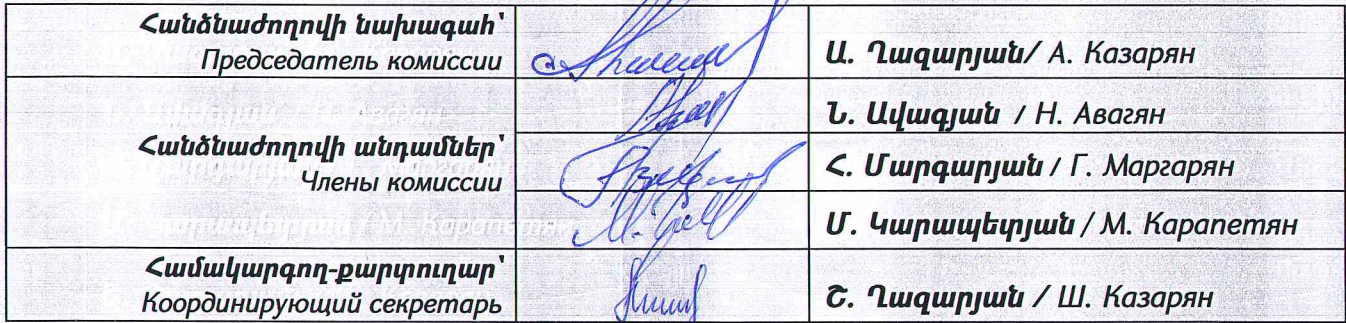 Հանձնաժողովի նախագահ՝
Председатель комиссии
Ա. Ղազարյան/ А. Казарян
Ն. Ավագյան / Н. Авагян
Հանձնաժողովի անդամներ՝
Члены комиссии
Հ. Մարգարյան / Г. Маргарян
Մ. Կարապետյան / М. Карапетян
Համակարգող-քարտուղար՝
Координирующий секретарь
Շ. Ղազարյան / Ш. Казарян